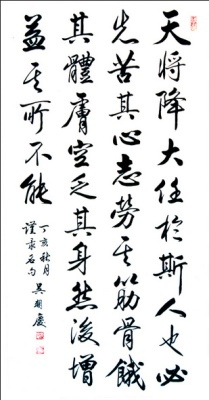 天將降大任於斯人也必
先苦其心志勞其筋骨餓
其體膚空乏其身然後增
益其所不能
丁亥秋月
謹录名句 吴